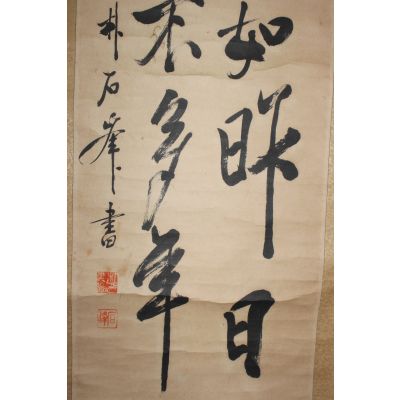 如昨日
不多年
井石峯書